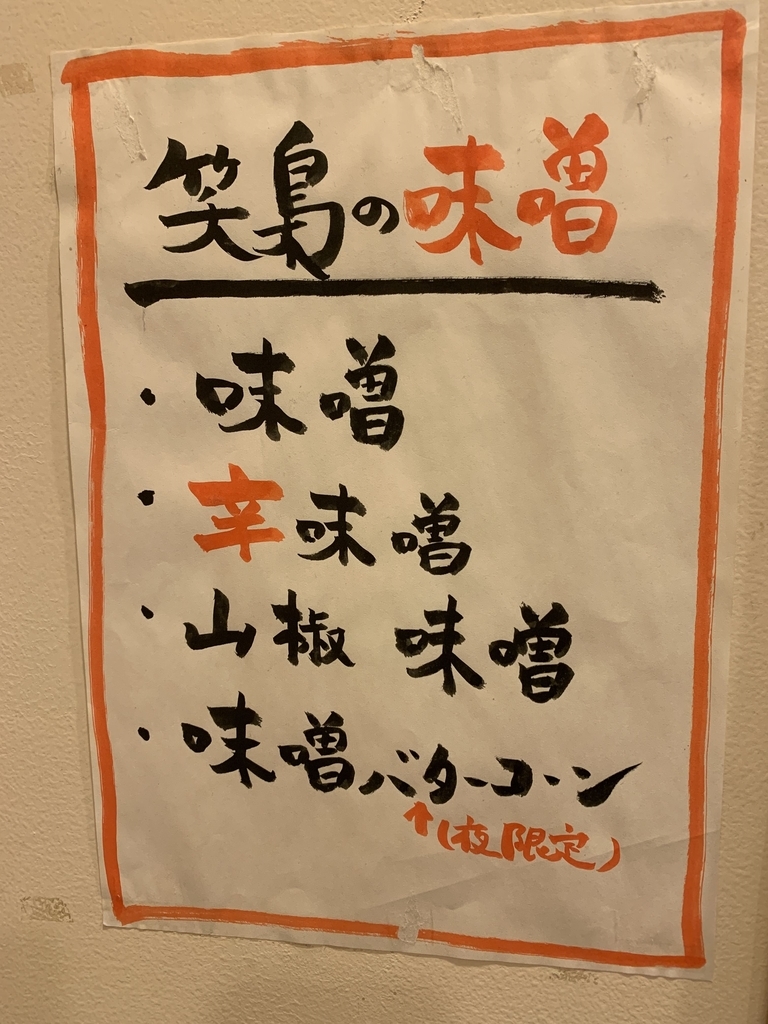 笑鳥の味噌
・味噌
・辛味噌
・山椒 味噌
・味噌バターコーン
↑(夜限定)